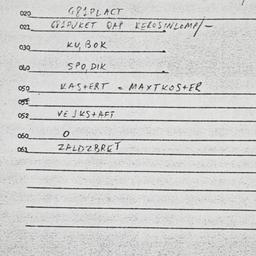 020 GRIPLACT
021 GRIPUKET OAP KEROSINLOMP/-
030 KU, BOK
040 SPO, DIK
050 KAS+ERT = MAXTKOS+ER
051
052 VEJKS+AFT
060 O
061 ZALDZBRET